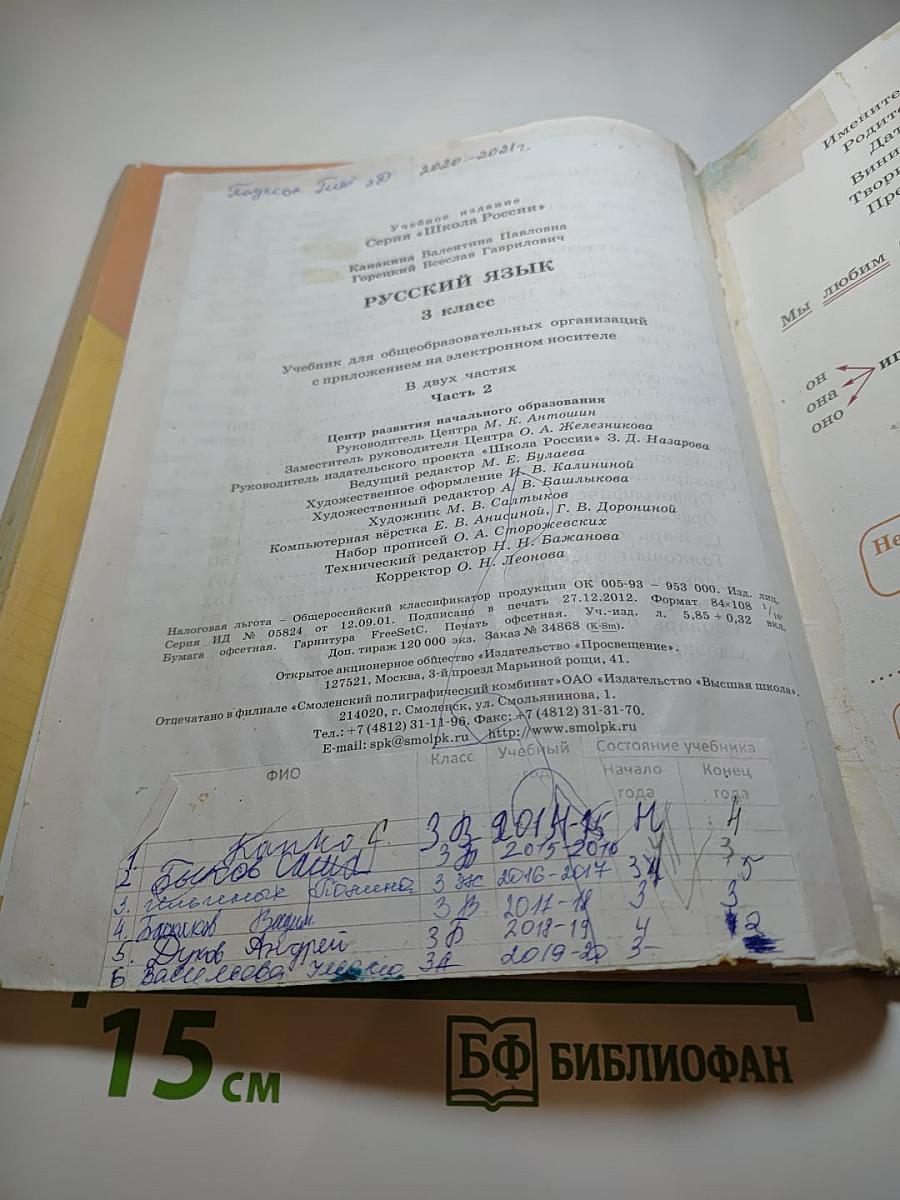 2020-2021г.
Учебное издание
Серия «Школа России»
Канакина Валентина Павловна
Горецкий Всеслав Гаврилович
РУССКИЙ ЯЗЫК
3 класс
Учебник для общеобразовательных организаций
с приложением на электронном носителе
В двух частях
Часть 2
Центр развития начального образования
Руководитель Центра М. К. Антошин
Заместитель руководителя Центра О. А. Железникова
Руководитель издательского проекта «Школа России» З. Д. Назарова
Ведущий редактор М. Е. Булаева
Художественное оформление И. В. Калининой
Художественный редактор А. В. Башлыкова
Художник М. В. Салтыков
Компьютерная вёрстка Е. В. Анисиной, Г. В. Дорониной
Набор прописей О. А. Сторожевских
Технический редактор Н. Н. Бажанова
Корректор О. Н. Леонова
Налоговая льгота – Общероссийский классификатор продукции ОК 005-93 – 953 000. Изд. лиц.
Серия ИД № 05824 от 12.09.01. Подписано в печать 27.12.2012. Формат 84×108 1/16.
Бумага офсетная. Гарнитура FreeSetC. Печать офсетная. Уч.-изд. л. 5,85 + 0,32 вкл.
Доп. тираж 120 000 экз. Заказ № 34868 (K-Sm).
Открытое акционерное общество «Издательство «Просвещение».
127521, Москва, 3-й проезд Марьиной рощи, 41.
Отпечатано в филиале «Смоленский полиграфический комбинат» ОАО «Издательство «Высшая школа».
214020, г. Смоленск, ул. Смольянинова, 1.
Тел.: +7 (4812) 31-11-96. Факс: +7 (4812) 31-31-70.
E-mail: spk@smolpk.ru http://www.smolpk.ru
ФИО Класс Учебный год Состояние учебника
Начало года Конец года
1. 3 В 2014-15 Н 4
2. Быков Саша 3 Б 2015-2016 3
3. 3 Ж 2016-2017 5
4. Вадим 3 В 2017-18 3 3
5. Духов Андрей 3 Б 2018-19 4 2
6 3А 2019-20 3-
Мы любим
он
она
оно
Не
15 см
БФ БИБЛИОФАН